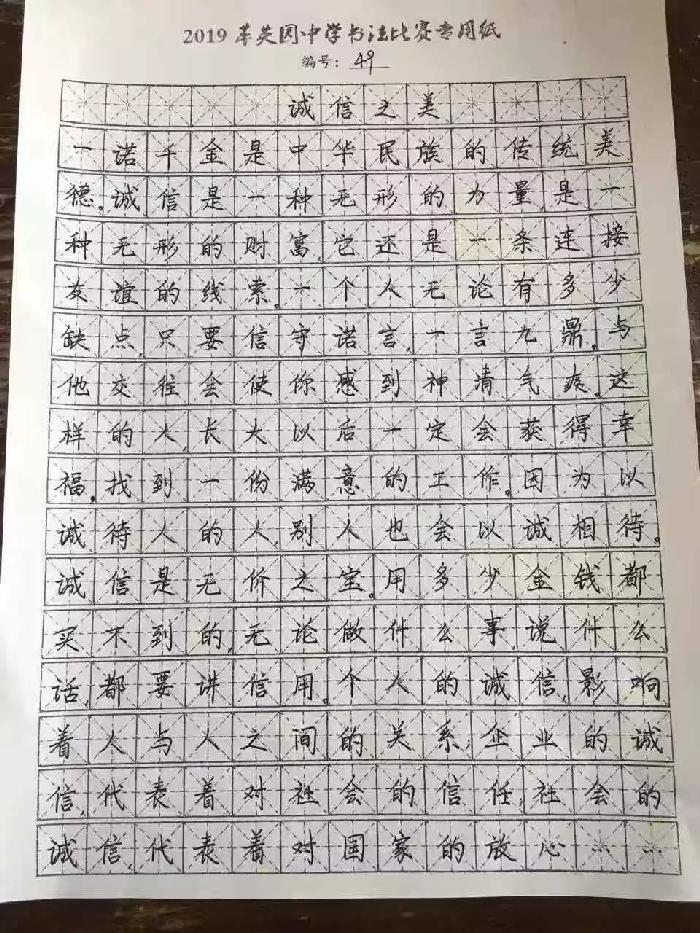 2019年英园中学书法比赛专用纸
编号：49
诚信之美
一诺千金是中华民族的传统美
德。诚信是一种无形的力量，是一
种无形的财富，它还是一条连接
友谊的线索。一个人无论有多少
缺点，只要信守诺言，一言九鼎，与
他交往会使你感到神清气爽。这
样的人，长大以后一定会获得幸
福，找到一份满意的工作。因为以
诚待人的人，别人也会以诚相待。
诚信是无价之宝。用多少金钱都
买不到的，无论做什么事，说什么
话，都要讲信用。个人的诚信，影响
着人与人之间的关系，企业的诚
信，代表着对社会的信任，社会的
诚信，代表着对国家的放心……